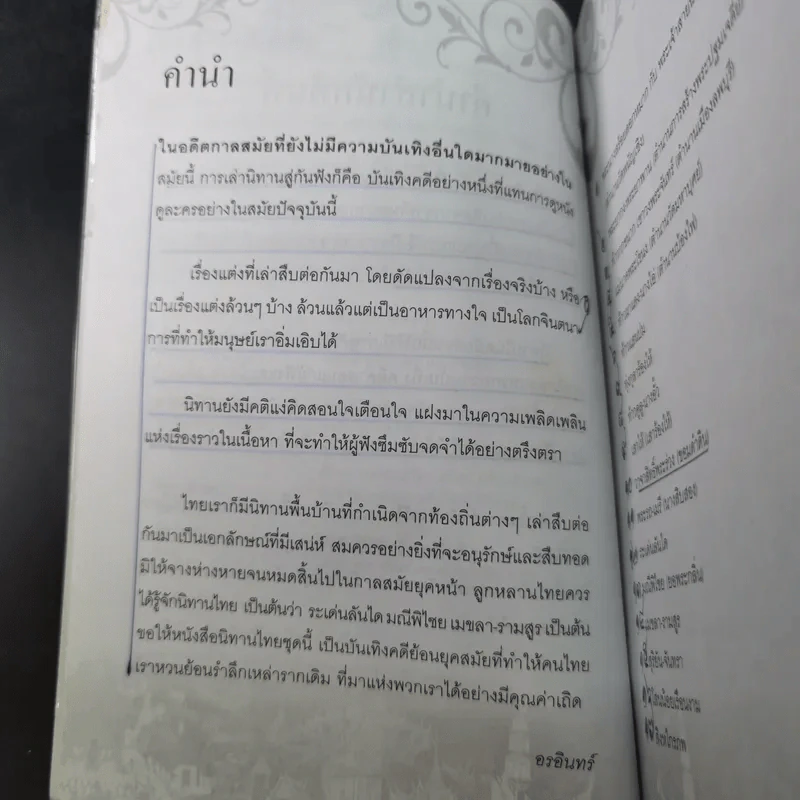 คำนำ
ในอดีตกาลสมัยที่ยังไม่มีความบันเทิงอื่นใดมากมายอย่างใน
สมัยนี้ การเล่านิทานสู่กันฟังก็คือ บันเทิงคดีอย่างหนึ่งที่แทนการดูหนัง
ดูละครอย่างในสมัยปัจจุบันนี้
เรื่องแต่งที่เล่าสืบต่อกันมา โดยดัดแปลงจากเรื่องจริงบ้าง หรือ
เป็นเรื่องแต่งล้วนๆ บ้าง ล้วนแล้วแต่เป็นอาหารทางใจ เป็นโลกจินตนา
การที่ทำให้มนุษย์เราอิ่มเอิบได้
นิทานยังมีคติแง่คิดสอนใจเตือนใจ แฝงมาในความเพลิดเพลิน
แห่งเรื่องราวในเนื้อหา ที่จะทำให้ผู้ฟังซึมซับจดจำได้อย่างตรึงตรา
ไทยเราก็มีนิทานพื้นบ้านที่กำเนิดจากท้องถิ่นต่างๆ เล่าสืบต่อ
กันมาเป็นเอกลักษณ์ที่มีเสน่ห์ สมควรอย่างยิ่งที่จะอนุรักษ์และสืบทอด
มิให้จางห่างหายจนหมดสิ้นไปในกาลสมัยยุคหน้า ลูกหลานไทยควร
ได้รู้จักนิทานไทย เป็นต้นว่า ระเด่นลันได มณีพิไชย เมขลา-รามสูร เป็นต้น
ขอให้หนังสือนิทานไทยชุดนี้ เป็นบันเทิงคดีย้อนยุคสมัยที่ทำให้คนไทย
เราหวนย้อนรำลึกเหล่ารากเดิม ที่มาแห่งพวกเราได้อย่างมีคุณค่าเถิด
อรอินทร์
พระรถเมรี (นางสิบสอง)
ระเด่นลันได
มณีพิไชย (ยอพระกลิ่น)
เมขลา-รามสูร
สิงหไกรภพ